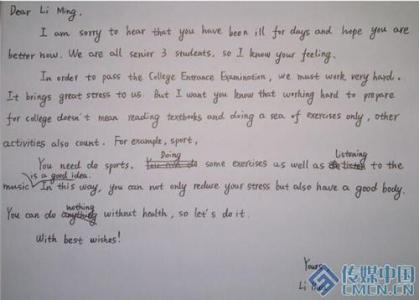 Dear Li Ming,
I am sorry to hear that you have been ill for days and hope you are
better now. We are all senior 3 students, so I know your feeling.
In order to pass the College Entrance Examination, we must work very hard.
It brings great stress to us. But I want you know that working hard to prepare
for college doesn't mean reading textbooks and doing a sea of exercises only, other
activities also count. For example, sport,
You need do sports. Doing some exercises as well as Listening to the
music is a good idea. In this way, you can not only reduce your stress but also have a good body.
You can do nothing without health, so let's do it.
With best wishes!
Yours
Li
传媒中国
CMCN.CN